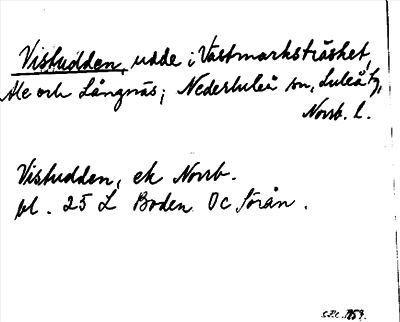 Vistudden, udde i Västmarksträsket,
Ale och Långnäs; Nederluleå sn, Luleå tg,
Norrb. l.
Vistudden, ek Norrb.
bl. 25 L Boden Oc Sörån.
1959.